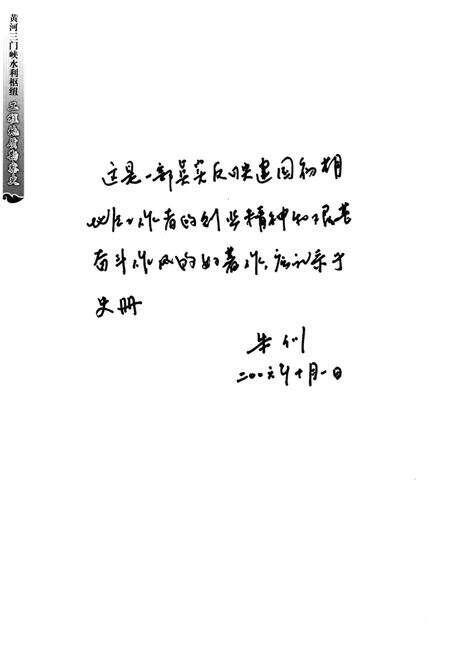 黄河三门峡水利枢纽 工程地质勘察史
这是一部真实反映建国初期
地质工作者的创业精神和艰苦
奋斗作风的好著作,应记录于
史册
朱训
二〇〇六年十月一日